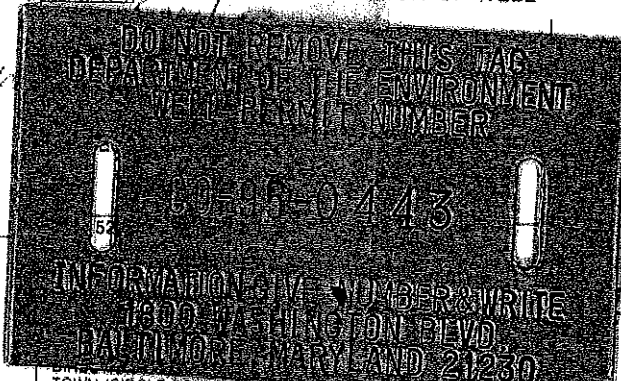 DO NOT REMOVE THIS TAG
DEPARTMENT OF THE ENVIRONMENT
WELL PERMIT NUMBER
CO-95-0443
52
INFORMATION GIVE NUMBER & WRITE
1800 WASHINGTON BLVD
BALTIMORE, MARYLAND 21230